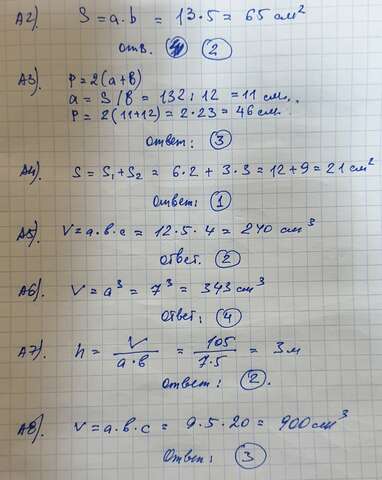 A2). S = a·b = 13·5 = 65 см²
Отв. 2
A3). P = 2(a+b)
a = S/b = 132 : 12 = 11 см.
P = 2(11+12) = 2·23 = 46 см.
Ответ: 3
A4). S = S₁+S₂ = 6·2 + 3·3 = 12+9 = 21 см²
Ответ: 1
A5). V = a·b·c = 12·5·4 = 240 см³
Ответ. 2
A6). V = a³ = 7³ = 343 см³
Ответ: 4
A7). h = V/a·b = 105/7·5 = 3 м
Ответ: 2.
A8). V = a·b·c = 9·5·20 = 900 см³
Ответ: 3